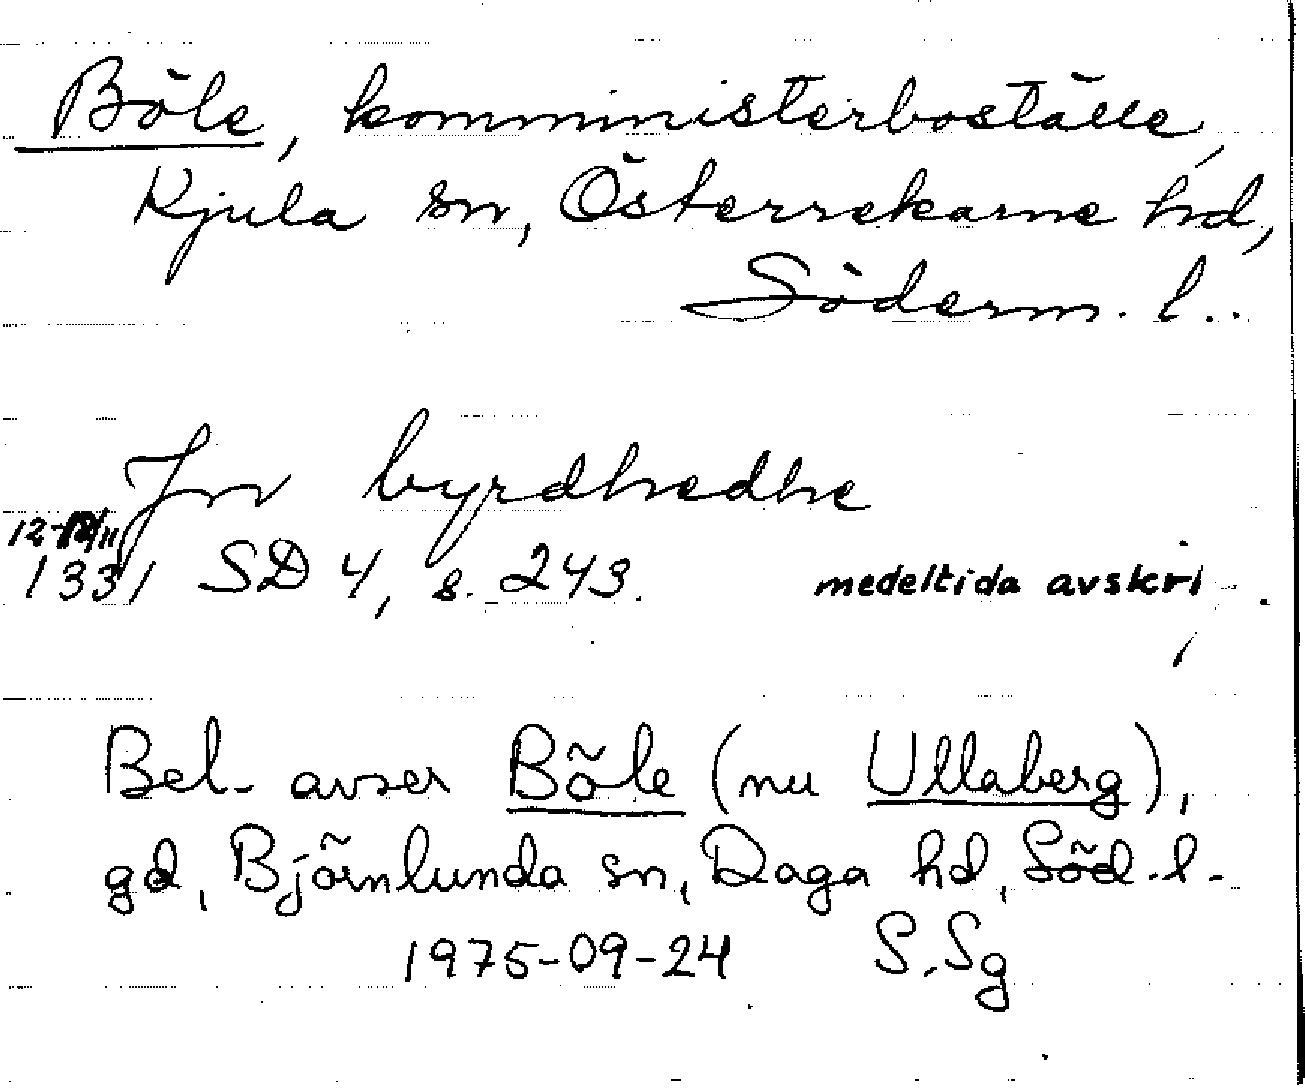 Böle, komministerboställe,
Kjula sn, Österrekarne hd,
Söderm. l..
Jn byrdhedhe
12 /11
1331 SD 4, s. 243. medeltida avskri
Bel. avser Böle (nu Ullaberg),
gd, Björnlunda sn, Daga hd, Söd. l.
1975-09-24 S.Sg